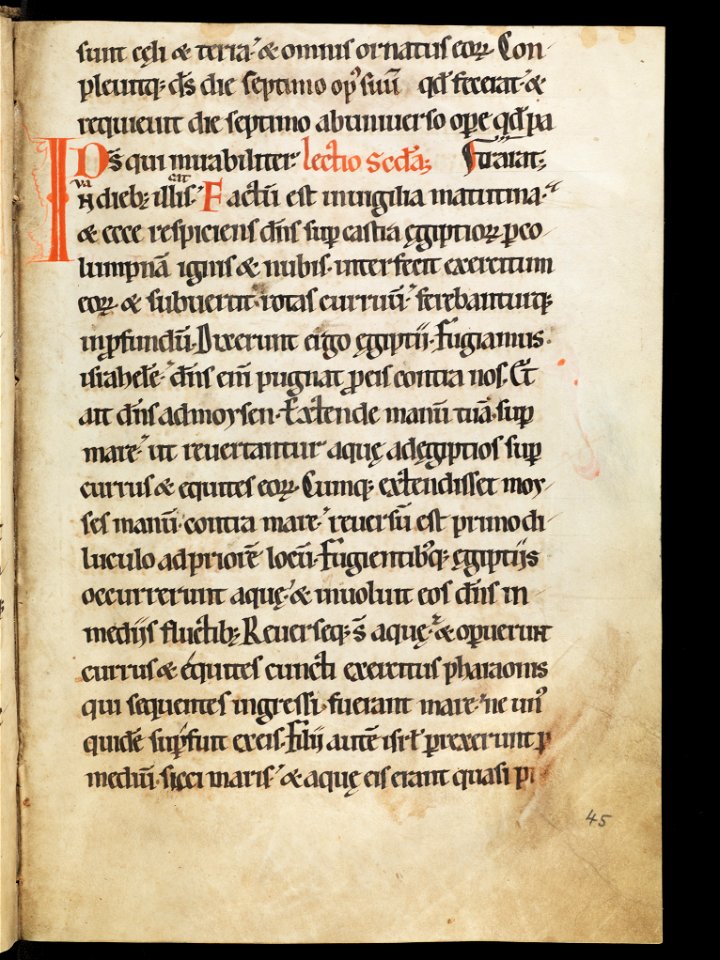 sunt cęli & terra. & omnis ornatus eoꝝ Con-
pleuitq; d̄s die septimo op᷒ suū qd̄ fecerat. &
requieuit die septimo ab uniuerso ope qd̄ pa
D̄s qui mirabiliter. lectio secd̄a; trarat;
In dieb; illis. Factū est in uigilia matutina.
& ecce respiciens dn̄s sup castra ęgiptioꝝ p co
lumpnā ignis & nubis. interfecit exercitum
eoꝝ & subuertit rotas curruū. ferebanturq;
in ꝓfundū. Dixerunt ergo ęgiptii. Fugiamus
israhele. dn̄s eni pugnat ꝓ eis contra nos. Et
ait dn̄s ad moysen. Extende manū tuā sup
mare. ut reuertantur aquę ad ęgiptios sup
currus & equites eoꝝ. Cumq; extendisset moy-
ses manū contra mare. reuersū est primo di-
luculo ad priorē locū. Fugientib᷒q; ęgiptiis
occurrerunt aquę. & inuoluit eos dn̄s in
mediis fluctib; Reuerseq; s̄ aquę. & operuerunt
currus & equites cuncti exercitus pharaonis
qui sequentes ingressi fuerant mare. ne un᷒
quidē supfuit ex eis. Filii autē isrł prexerunt p
mediū sicci maris. & aquę eis erant quasi p
45